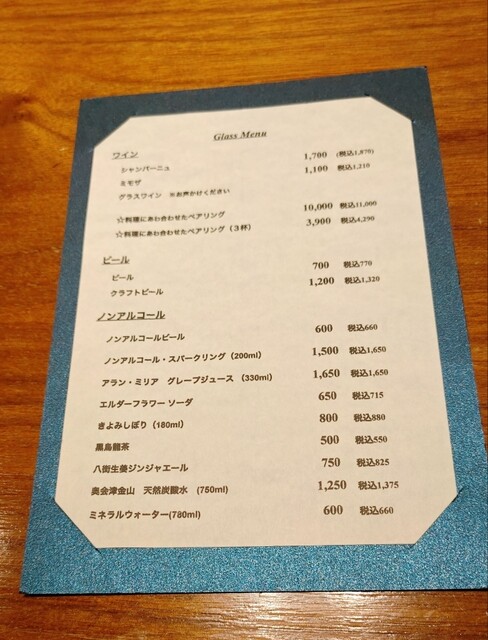 Glass Menu
ワイン
シャンパーニュ 1,700 (税込1,870)
ミモザ 1,100 税込1,210
グラスワイン ※お声かけください
☆料理にあわ合わせたペアリング 10,000 税込11,000
☆料理にあわ合わせたペアリング（3杯） 3,900 税込4,290
ビール
ビール 700 税込770
クラフトビール 1,200 税込1,320
ノンアルコール
ノンアルコールビール 600 税込660
ノンアルコール・スパークリング (200ml) 1,500 税込1,650
アラン・ミリア グレープジュース (330ml) 1,650 税込1,650
エルダーフラワー ソーダ 650 税込715
きよみしぼり (180ml) 800 税込880
黒烏龍茶 500 税込550
八街生姜ジンジャエール 750 税込825
奥会津金山 天然炭酸水 (750ml) 1,250 税込1,375
ミネラルウォーター(780ml) 600 税込660